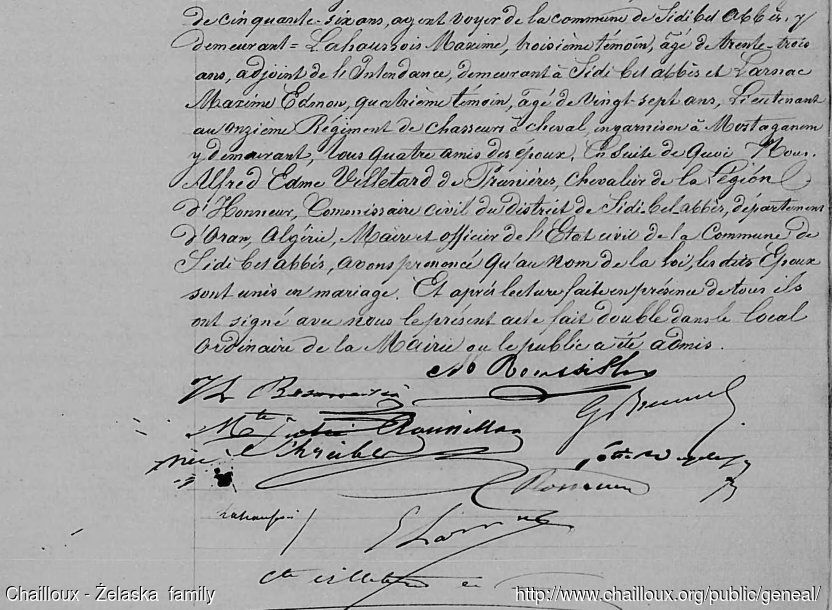 de cinquante-six ans, agent voyer de la commune de Sidi bel abbès, y
demeurant = Lahaussois Maxime, troisième témoin, âgé de trente-trois
ans, adjoint de l'Intendance, demeurant à Sidi bel abbès et Larnac
Maxime Edmon, quatrième témoin, âgé de vingt-sept ans, Lieutenant
au onzième Régiment de chasseurs à cheval, en garnison à Mostaganem
y demeurant, tous quatre amis des époux. En suite de quoi Nous
Alfred Edme Villetard de Prunières, chevalier de la Légion
d'Honneur, Commissaire civil du district de Sidi bel abbès, département
d'Oran, Algérie, Maire et officier de l'Etat civil de la Commune de
Sidi bel abbès, avons prononcé qu'au nom de la loi, les dits Époux
sont unis en mariage. Et après lecture faite en présence de tous ils
ont signé avec nous le présent acte fait double dans le local
ordinaire de la Mairie ou le public a été admis.
G Brunel
née
Chailloux - Żelaska family
http://www.chailloux.org/public/geneal/